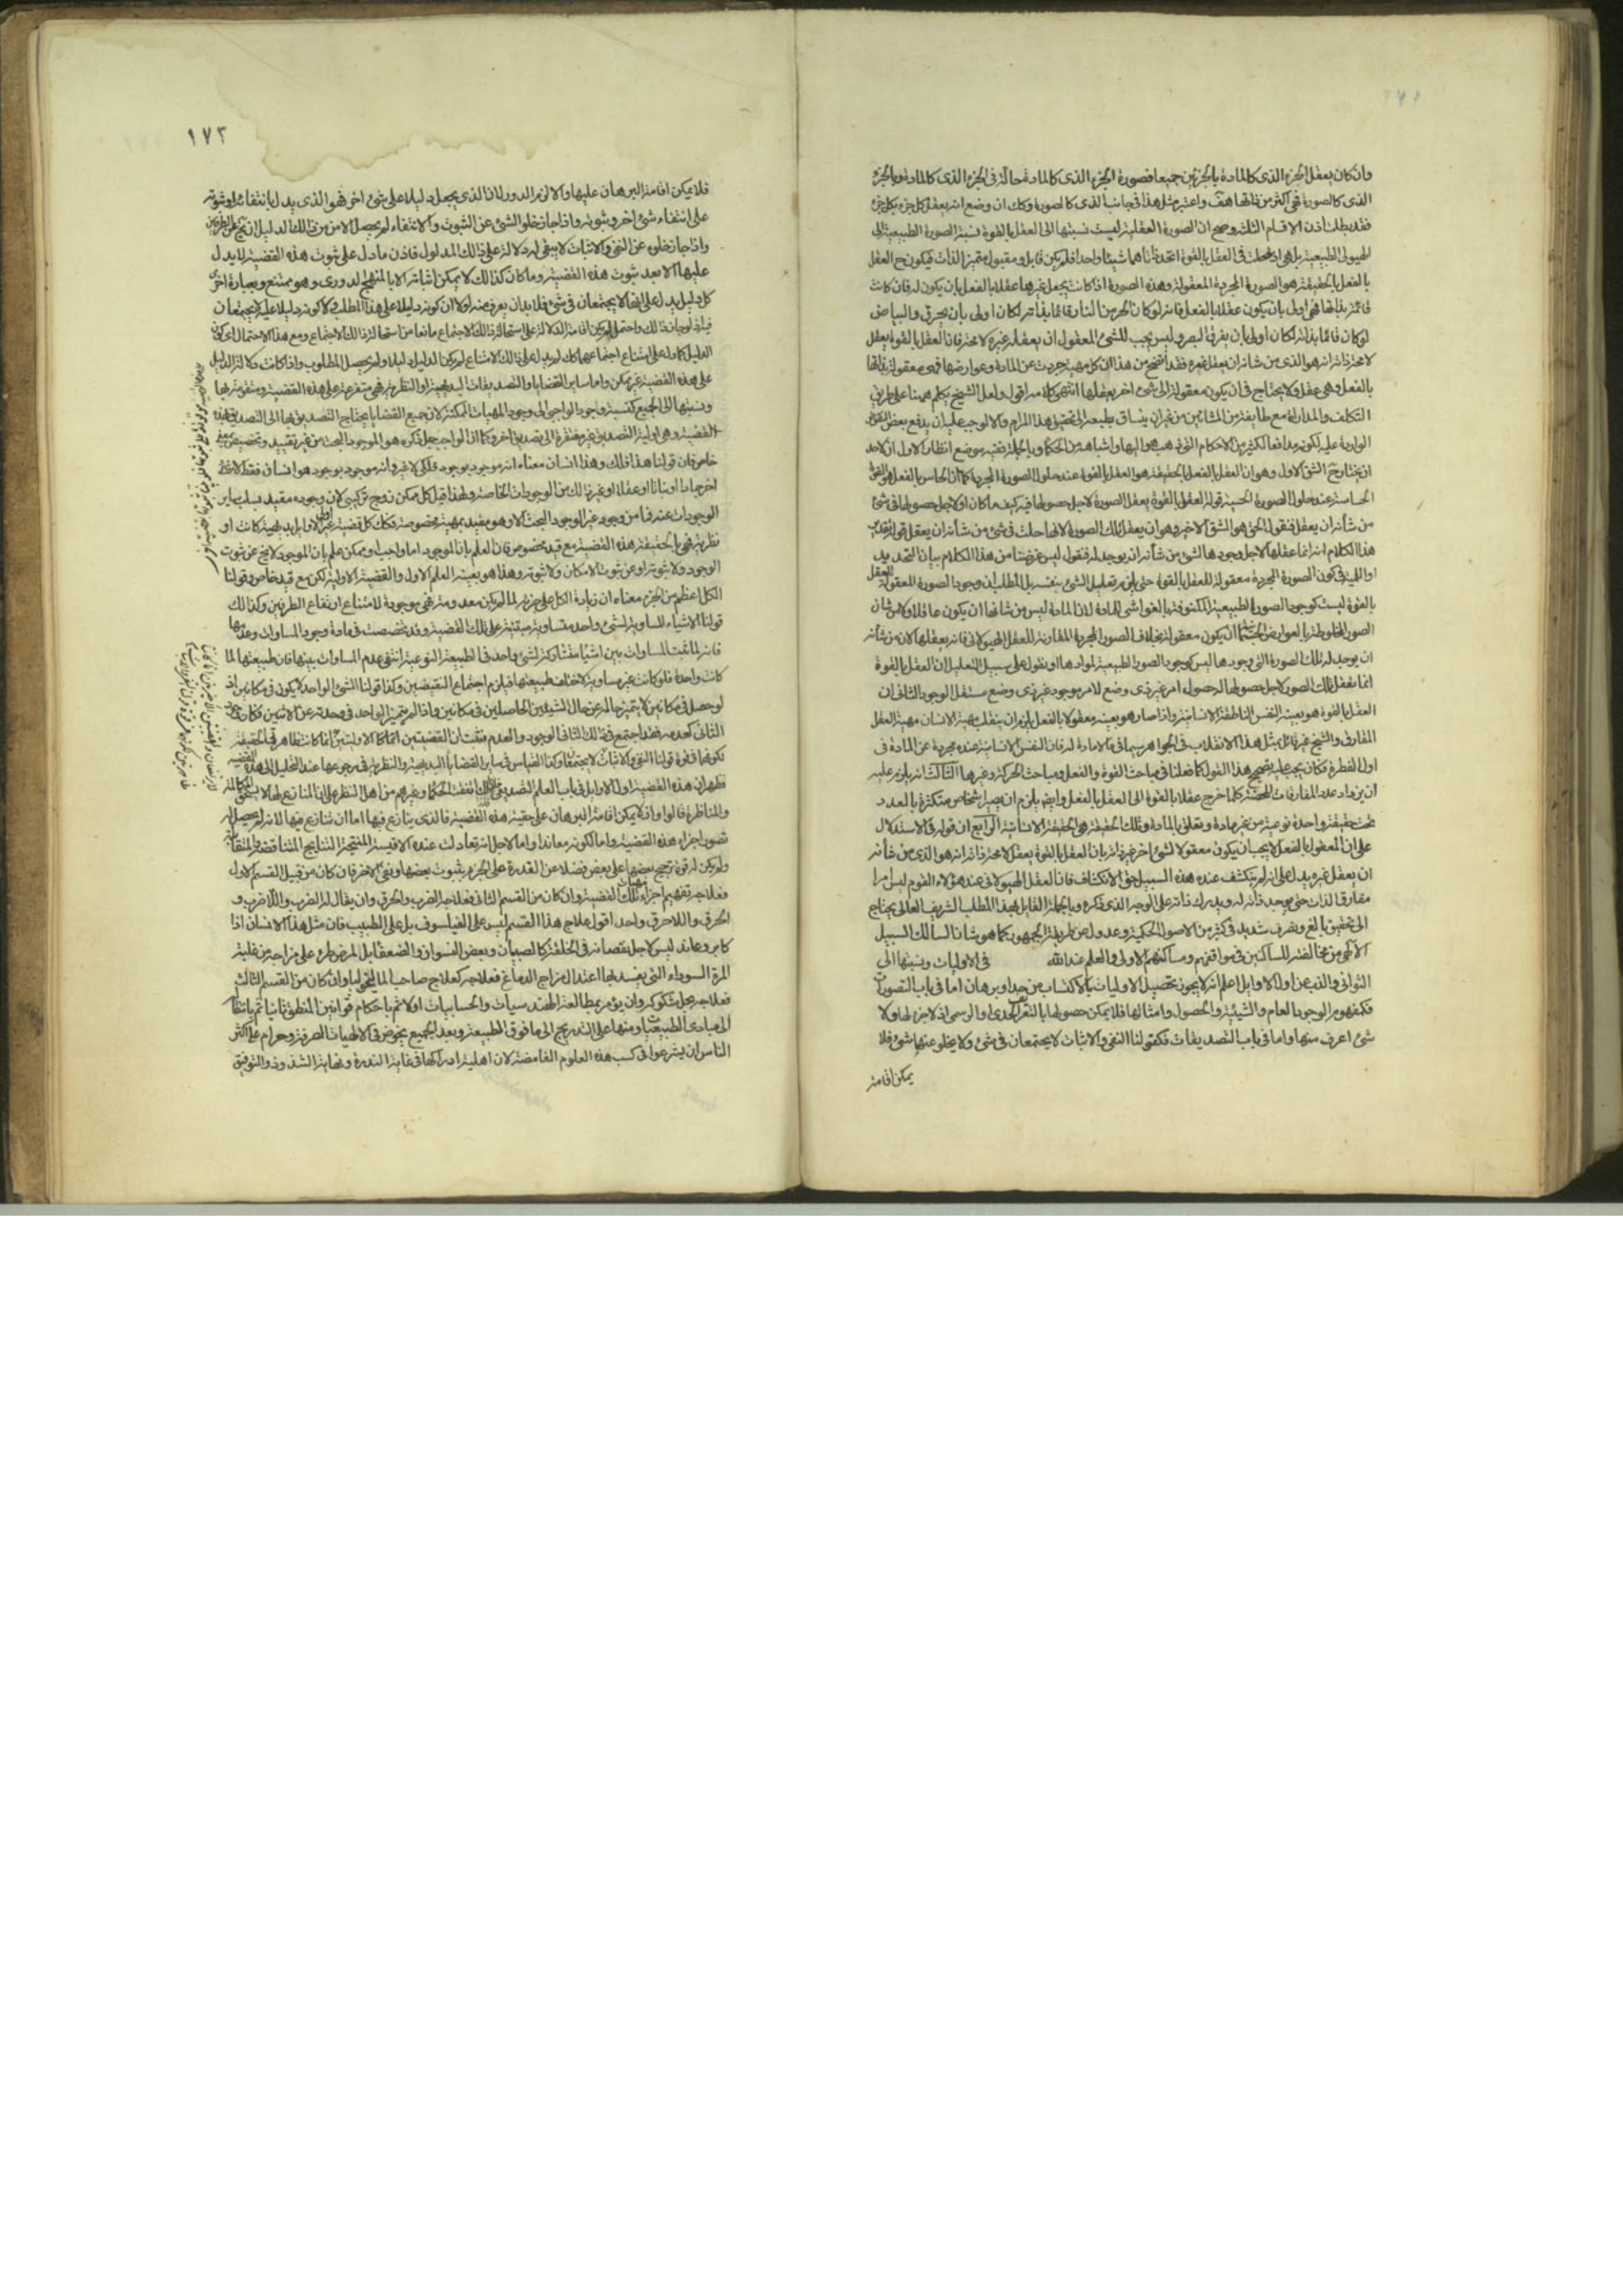 وان كان يعقل الجزء الذى كالمادة بالجزئين جميعا فصورة الجزء الذى كالمادة حالة فى الجزء الذى كالمادة وبالجزء
الذى كالصورة فهى اكثر من ذاتها هف واعتبر مثل هذا فى جانب الذى كالصورة وكك ان وضع انه يعقل كل جزء بكل جزء
فقد بطلت اذن الاقسام الثلثة وصح ان الصورة العقلية ليست نسبتها الى العقل بالقوة نسبة الصورة الطبيعية الى
الهيولى الطبيعية بل هى اذ حلت فى العقل بالقوة اتحدتا ذاتاهما شيئا واحدا فلم يكن قابل ومقبول متميز الذات فيكون ح العقل
بالفعل بالحقيقة هو الصورة المجردة المعقولة وهذه الصورة اذا كانت يجعل غيرها عقلا بالفعل بان يكون له فان كانت
قائمة بذاتها فهى اولى بان يكون عقلا بالفعل فانه لو كان الجزء من النار قائما بذاته لكان اولى بان يحرق والبياض
لو كان قائما بذاته لكان اولى بان يفرق البصر وليس يجب للشئ المعقول ان يعقله غيره لا محة فان العقل بالقوة يعقل
لا محة ذاته انه هو الذى من شانه ان يعقل غيره فقد اتضح من هذا ان كل مهية جردت عن المادة وعوارضها فهى معقولة بذاتها
بالفعل وهى عقل ولا يحتاج فى ان يكون معقولة الى شئ اخر يعقلها انتهى كلامه اقول ولعل الشيخ تكلم ههنا على طريق
التكلف والمداراة مع طائفة من المشائين من غير ان ينساق بطبيعته الى تحقيق هذا المرام والا لوجب عليه ان يدفع بعض النقوض
الواردة عليه لكونه مدافعا لكثير من الاحكام التى ذهب هو اليها واشباهه من الحكماء وبالجملة ففيه موضع انظار الاول ان لاحد
ان يختار ح الشق الاول وهو ان العقل بالفعل بالحقيقة هو العقل بالقوة عند حلول الصورة المجردة كما ان الحاس بالفعل هو القوة
الحساسة عند حلول الصورة الحسية قوله العقل بالقوة يعقل الصورة لاجل حصولها فيه كيف ما كان او لاجل حصولها فى شئ
من شأنه ان يعقل فنقول الحق هو الشق الاخير وهو ان يعقل تلك الصورة لانها حلت فى شئ من شأنه ان يعقل قوله تقدير
هذا الكلام انه انما عقلها لاجل وجودها لشئ من شأنه ان يوجد له فنقول ليس غرضنا من هذا الكلام بيان التحديد
او اللمية فى كون الصورة المجردة معقولة للعقل بالقوة حتى يلزم تعليل الشئ بنفسه بل المطلب ان وجود الصورة المعقولة للعقل
بالقوة ليست كوجود الصورة الطبيعية المكنوفة بالغواشى للمادة لان المادة ليس من شانها ان يكون عاقلا ولا من شان
الصور المخلوطة بالعوارض الجسمانية ان يكون معقولة بخلاف الصور المجردة المقارنة للعقل الهيولانى فانه يعقلها لان من شأنه
ان يوجد له تلك الصورة التى وجودها ليس كوجود الصور الطبيعية لموادها او نقول على سبيل التعليل ان العقل بالقوة
انما يعقل تلك الصور لاجل حصولها له حصول امر غير ذى وضع لامر موجود غير ذى وضع مستقل الوجود الثانى ان
العقل بالقوة هو بعينه النفس الناطقة الانسانية واذا صار هو بعينه معقولا بالفعل يلزم ان ينقلب مهية الانسان مهية العقل
المفارق والشيخ غير قائل بمثل هذا الانقلاب فى الجواهر سيما فيما لا مادة له فان النفس الانسانية عنده مجردة عن المادة فى
اول الفطرة فكان يجب عليه تصحيح هذا القول كما فعلنا فى مباحث القوة والفعل ومباحث الحركة وغيرها الثالث انه يلزم عليه
ان يزداد عدد المفارقات المحضة كلما خرج عقل بالقوة الى العقل بالفعل وايضا يلزم ان يصير اشخاص متكثرة بالعدد
تحت حقيقة واحدة نوعية من غير مادة وتعلق بالمادة وتلك الحقيقة هى الحقيقة الانسانية الرابع ان قوله فى الاستدلال
على ان المعقول بالفعل لا يجب ان يكون معقولا لشئ اخر غير ذاته بان العقل بالقوة يعقل لا محة ذاته انه هو الذى من شأنه
ان يعقل غيره يدل على انه لم ينكشف عنده هذه السبيل حق الانكشاف فان العقل الهيولانى عند هؤلاء القوم ليس امرا
مفارق الذات حتى يوجد ذاته له ويدرك ذاته على الوجه الذى ذكره وبالجملة القائل بهذا المطلب الشريف العالى يحتاج
الى تحقيق بالغ وتصرف شديد فى كثير من الاصول الحكمية وعدول عن طريقة الجمهور كما هو شان السالك السبيل
الالهى من مخالفته للساكنين فى مواقفهم ومساكنهم الاولى والعلم عند الله فى الاوليات ونسبتها الى
الثوانى والذب عن اول الاوايل اعلم انه لا يجوز تحصيل الاوليات بالاكتساب من حد او برهان اما فى باب التصورات
فكمفهوم الوجود العام والشيئية والحصول وامثالها فلا يمكن حصولها بالتعريف الحدى او الرسمى اذ لا جزء لها ولا
شئ اعرف منها واما فى باب التصديقات فكقولنا النفى والاثبات لا يجتمعان فى شئ ولا يخلو عنهما شئ فلا
يمكن اقامة
١٧٢
فلا يمكن اقامة البرهان عليها والا لزم الدور لان الذى يجعل دليلا على شئ اخر فهو الذى يدل بانتفائه او ثبوته
على انتفاء شئ اخر وثبوته واذا جاز خلو الشئ عن الثبوت والانتفاء لم يحصل الامن من ذلك الدليل
واذا جاز خلوه عن النفى والاثبات لا يبقى له دلالة على ذلك المدلول فاذن ما دل على ثبوت هذه القضية لا يدل
عليها الا بعد ثبوت هذه القضية وما كان كذلك لا يمكن اثباته الا بالمنهج الدورى وهو ممتنع وبعبارة اخرى
كل دليل يدل على انهما لا يجتمعان فى شئ فلا بد ان يعرف منه اولا ان كونه دليلا على هذا المطلب ولا كونه دليلا عليه لا يجتمعان
فيه اذ لو جاز ذلك واحتمل لم يكن اقامة الدلالة على استحالة ذلك الاجتماع مانعا من استحالة ذلك الاجتماع ومع هذا الاحتمال
الدليل كما دل على امتناع اجتماعهما كك لم يدل على ذلك الامتناع لم يكن الدليل دليلا ولم يحصل المطلوب واذا كانت دلالة الدليل
على هذه القضية غير ممكن واما ساير القضايا والتصديقات البديهية او النظرية فهى متفرعة على هذه القضية ومتقومة بها
ونسبتها الى الجميع كنسبة وجود الواجبى الى وجود المهيات الممكنة لان جميع القضايا يحتاج التصديق بها الى التصديق بهذه
القضية وهى اولية التصديق غير مفتقرة الى تصديق اخر وكما ان الواجب جل ذكره هو الموجود البحت من غير تقييد وتخصيص
خاص فان قولنا هذا فلك وهذا انسان معناه انه موجود بوجود فلكى لا غير وانه موجود بوجود هو انسان فقط لا شئ
اخر جمادا او نباتا او عقلا او غير ذلك من الوجودات الخاصة ولهذا قيل كل ممكن زوج تركيبى لان وجوده مقيد بسلب ساير
الوجودات عنه فما من وجود غير الوجود البحت الا وهو مقيد بمهية مخصوصة فكذلك كل قضية غير اول الاوايل بديهية كانت او
نظرية فهى بالحقيقة هذه القضية مع قيد مخصوص فان العلم بان الموجود اما واجب او ممكن علم بان الموجود لا يخ عن ثبوت
الوجود ولا ثبوته او عن ثبوت الامكان ولا ثبوته وهذا هو بعينه العلم الاول والقضية الاولية لكن مع قيد خاص وقولنا
الكل اعظم من الجزء معناه ان زيادة الكل على جزئه لما لم يكن معدومة فهى موجودة لامتناع ارتفاع الطرفين وكذلك
قولنا الاشياء المساوية لشئ واحد متساوية مبتنية على تلك القضية وقد تخصصت فى مادة وجود المساوات وعدمها
فانه لما ثبت المساوات بين اشياء متشاركة لشئ واحد فى الطبيعة النوعية انتفى عدم المساوات بينها فان طبيعتها لما
كانت واحدة فلو كانت غير مساوية لاختلف طبيعتها فيلزم اجتماع النقيضين وكذا قولنا الشئ الواحد لا يكون فى مكانين اذ
لو حصل فى مكانين لا يتميز حاله عن حال الشيئين الحاصلين فى مكانين واذا لم يتميز الواحد فى وحدته عن الاثنين فكان وجود
الثانى كعدمه فقد اجتمع فى ذلك الثانى الوجود والعدم فثبت ان القضيتين الاوليتين انما كانت ظاهرة الحقيقة
لكونهما فى قوة قولنا النفى والاثبات لا يجتمعان وكذا القياس فى ساير القضايا البديهية والنظرية فى رجوعها عند التحليل الى هذه القضية
فظهر ان هذه القضية اول الاوايل فى باب العلم التصديقى ولذلك اتفقت الحكماء وغيرهم من اهل النظر على ان المنازع لها لا يستحق المكالمة
والمناظرة قالوا واذ لا يمكن اقامة البرهان على حقية هذه القضية فالذى ينازع فيها اما ان تنازع فيها لانه لم يحصل له
تصور اجزاء هذه القضية واما لكونه معاندا واما لاجل انه تعادلت عنده الاقيسة المنتجة للنتايج المتناقضة والمتقابلة
ولم يكن له قوة ترجيح بعضها على بعض فضلا عن القدرة على الجزم بثبوت بعضها ونفى الاخر فان كان من قبيل القسم الاول
فعلاجه تفهيم اجزاء تلك القضية وان كان من القسم الثانى فعلاجه الضرب والحرق وان يقال له الضرب واللاضرب و
الحرق واللاحرق واحد اقول علاج هذا القسم ليس على الفيلسوف بل على الطبيب فان مثل هذا الانسان اذا
كابر وعاند ليس لاجل نقصانه فى الخلقة كالصبيان وبعض النسوان والضعفاء بل لمرض طرء على مزاجه من غلبة
المرة السوداء التى يفسد بها اعتدال مزاج الدماغ فعلاجه كعلاج صاحب الماليخوليا وان كان من القسم الثالث
فعلاجه بحل شكوكه وان يؤمر بمطالعة الهندسيات والحسابيات اولا ثم باحكام قوانين المنطق ثانيا ثم بانتقاله
الى مبادى الطبيعيات ومنها على التدريج الى ما فوق الطبيعة وبعد الجميع يخوض فى الالهيات الصرفة وحرام على اكثر
الناس ان يشرعوا فى كسب هذه العلوم الغامضة لان اهلية ادراكها فى غاية الندرة ونهاية الشذوذ والتوفيق